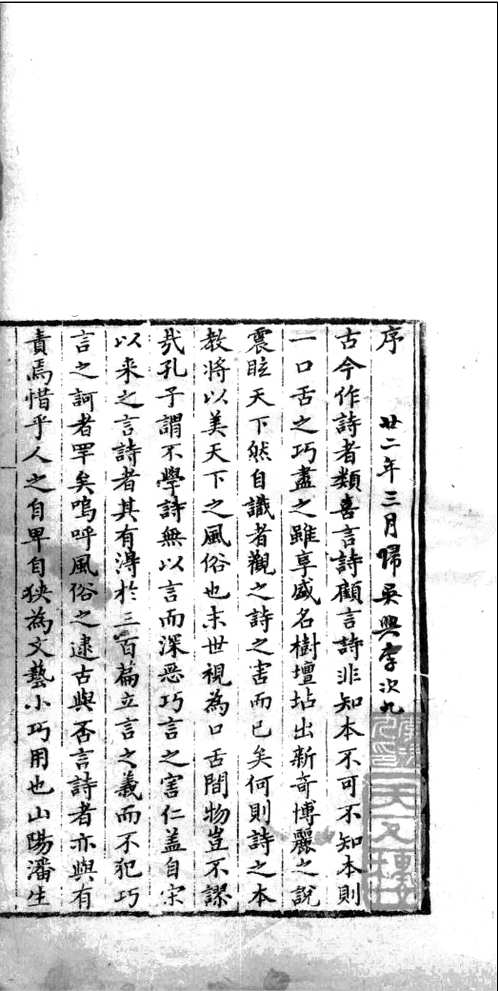 序 廿二年三月歸吳興李次九
古今作詩者類喜言詩顧言詩非知本不可不知本則
一口舌之巧盡之雖享盛名樹壇坫出新奇博麗之說
震眩天下然自識者觀之詩之害而已矣何則詩之本
教將以美天下之風俗也末世視為口舌間物豈不謬
哉孔子謂不學詩無以言而深惡巧言之害仁蓋自宋
以来之言詩者其有淂於三百篇立言之義而不犯巧
言之訶者罕矣嗚呼風俗之逮古與否言詩者亦與有
責焉惜乎人之自畀自狹為文藝小巧用也山陽潘生
天